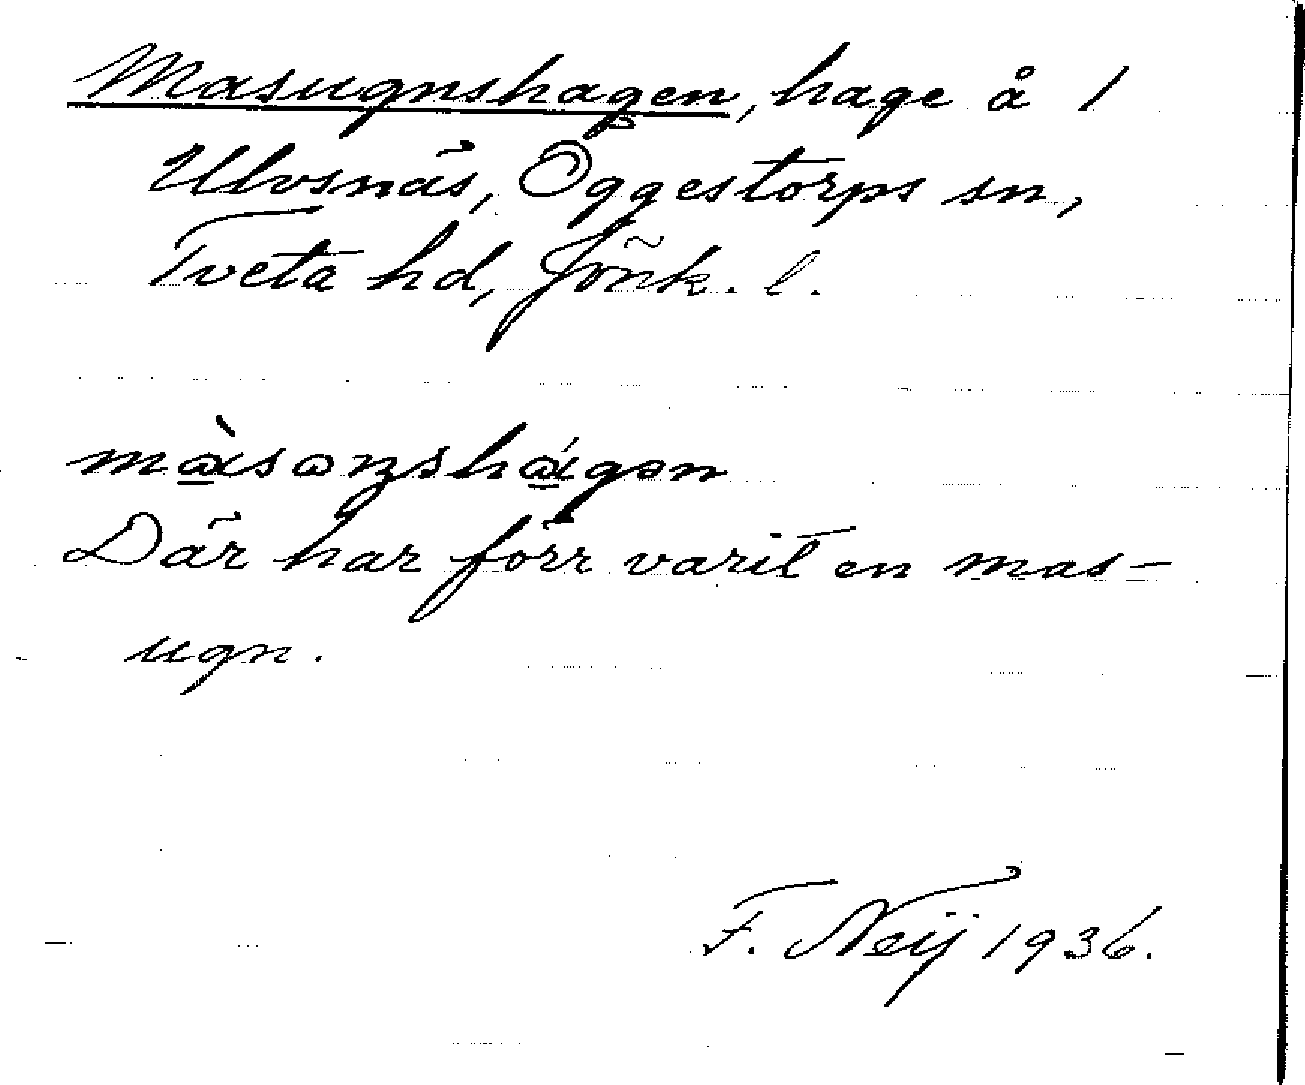 Masugnshagen, hage å 1
Ulvsnäs, Öggestorps sn,
Tveta hd, Jönk. l.
Där har förr varit en mas-
ugn.
F. Neij 1936.